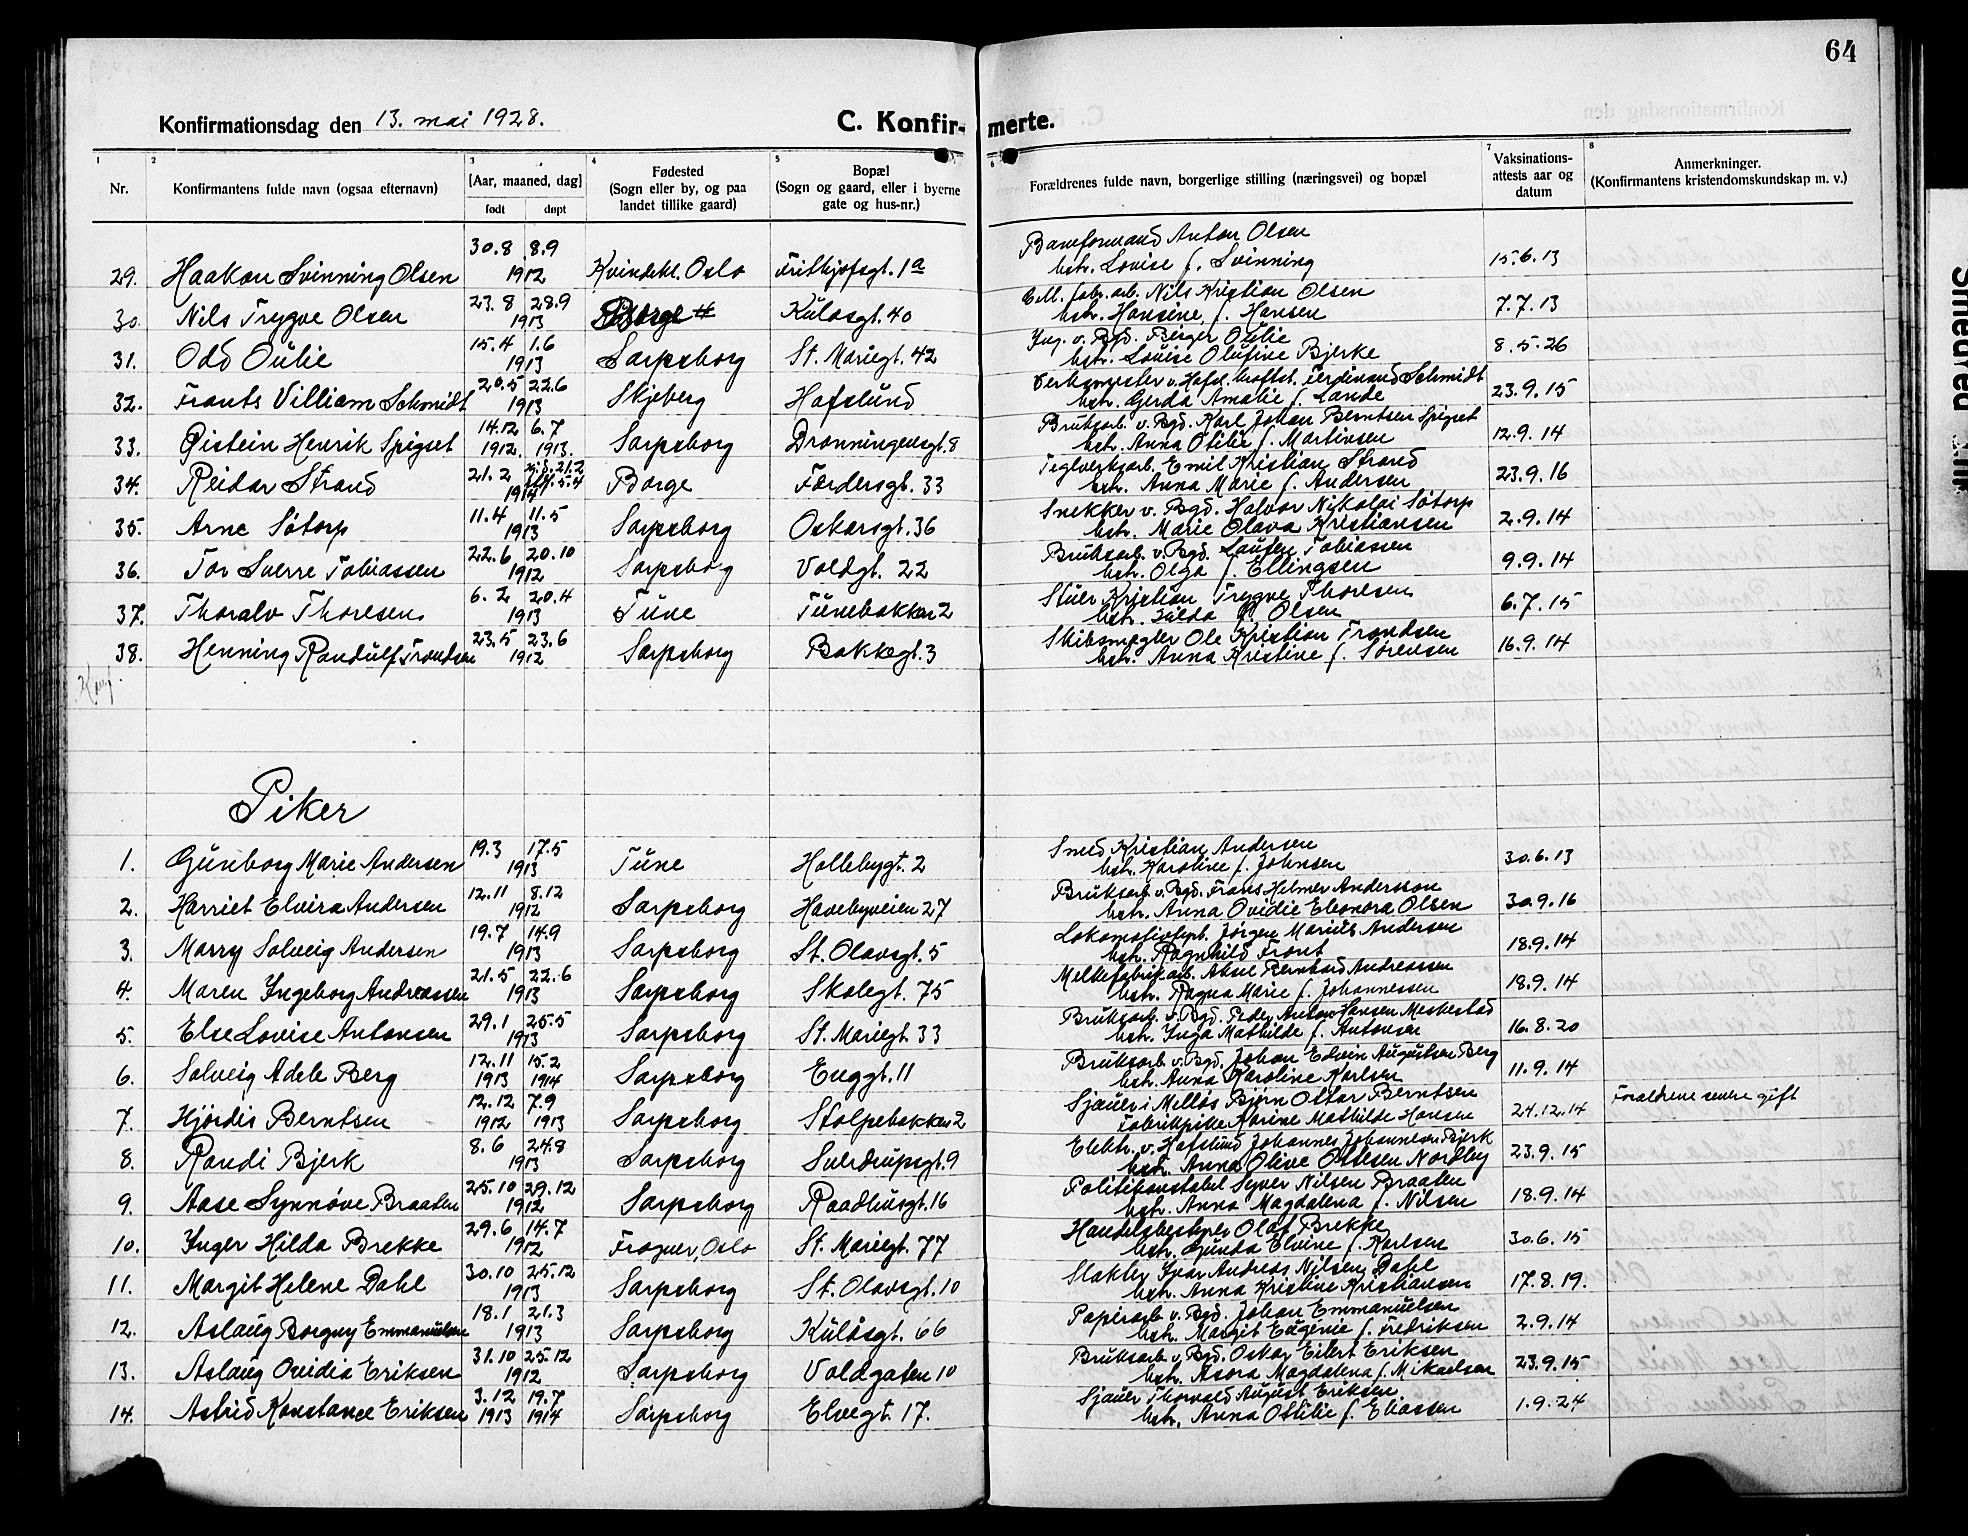 64
Konfirmationsdag den 13. mai 1928.
C. Konfir- merte.
1 2 3 4 5 6 7 8
Nr. Konfirmantens fulde navn (ogsaa efternavn) [Aar, maaned, dag] født døpt Fødested (Sogn eller by, og paa landet tillike gaard) Bopæl (Sogn og gaard, eller i byerne gate og hus-nr.) Forældrenes fulde navn, borgerlige stilling (næringsvei) og bopæl Vaksinations-attests aar og datum Anmerkninger. (Konfirmantens kristendomskundskap m. v.)
30.8 8.9 Baneformand Anton Olsen
29. Haakon Svinning Olsen 1912 Kvindekl. Oslo Frithjofsgt. 1a hstr. Lovise f. Svinning 15.6.13
23.8 28.9 Cell. fabr. arb. Nils Kristian Olsen
30. Nils Trygve Olsen 1913 Borge Kulåsgt. 40 hstr. Hansine f. Hansen 7.7.13
15.4 1.6 Ing. v. Bgd. Birger Oulie
31. Odd Oulie 1913 Sarpsborg St. Mariegt. 42 hstr. Louise Olufine Bjerke 8.5.26
20.5 22.6 Verksmester v. Hafsl. kraftst. Ferdinand Schmidt
32. Frants Villiam Schmidt 1913 Skjeberg Hafslund hstr. Gerda Amalie f. Lande 23.9.15
14.12 6.7 Bruksarb. v. Bgd. Karl Johan Berntsen Spigset
33. Øistein Henrik Spigset 1912. 1913. Sarpsborg Dronningensgt. 8 hstr. Anna Otilie f. Martinsen 12.9.14
21.2 21.2 5.4 Teglverksarb. Emil Kristian Strand
34. Reidar Strand 1914 Borge Fördersgt. 33 hstr. Anna Marie f. Andersen 23.9.16
11.4 11.5 Snekker v. Bgd. Halvor Nikolai Såtorp
35. Arne Såtorp 1913 Sarpsborg Oskarsgt. 36 hstr. Marie Olava Kristiansen 2.9.14
22.6 20.10 Bruksarb. v. Bgd. Laurtz Tobiassen
36. Tor Sverre Tobiassen 1912 Sarpsborg Voldgt. 22 hstr. Olga f. Ellingsen 9.9.14
6.2 20.4 Stuer Kristian Trygve Thoresen
37. Thoralv Thoresen 1913 Tune Tunebakken 2 hstr. Hilda f. Olsen 6.7.15
23.5 23.6 Skibsmægler Ole Kristian Trondsen
38. Henning Randulf Trondsen 1912 Sarpsborg Bakkegt. 3 hstr. Anna Kristine f. Sörensen 16.9.14
Piker
19.3 17.5 Smed Kristian Andersen
1. Gunborg Marie Andersen 1913 Tune Hollebygt. 2 hstr. Karoline f. Johnsen 30.6.13
12.11 8.12 Bruksarb. v. Bgd. Frans Helmer Andersson
2. Harriet Elvira Andersen 1912 Sarpsborg Havebyveien 27 hstr. Anna Ovidie Eleonora Olsen 30.9.16
19.7 14.9 Lokomotivfyrb. Jörgen Marius Andersen
3. Marry Solveig Andersen 1913 Sarpsborg St. Olavsgt. 5 hstr. Ragnhild Front 18.9.14
21.5 22.6 Melkefabrikarb. Aksel Bernhard Andreassen
4. Maren Ingeborg Andreassen 1913 Sarpsborg Skolegt. 75 hstr. Ragna Marie f. Johannessen 18.9.14
29.1 25.5 Bruksarb. v. Bgd. Peder Anton Hansen Meskestad
5. Else Lovise Antonsen 1913 Sarpsborg St. Mariegt. 33 hstr. Inga Mathilde f. Antonsen 16.8.20
12.11 15.2 Bruksarb. v. Bgd. Johan Edvin Augustsen Berg
6. Solveig Adele Berg 1913 1914 Sarpsborg Enggt. 11 hstr. Anna Karoline Karlsen 11.9.14
12.12 7.9 Sjauer i Mellös Björn Ottar Berntsen Forældrene senere gift
7. Hjördis Berntsen 1912 1913 Sarpsborg Stolpebakken 2 Fabrikpike Karine Mathilde Hansen 24.12.14
8.6 24.8 Elektr. v. Hafslund Johannes Johannesen Bjerk
8. Randi Bjerk 1913 Sarpsborg Sverdrupsgt. 9 hstr. Anna Olive Ottesen Nordby 23.9.15
25.10 29.12 Politikonstabel Syver Nilsen Braaten
9. Aase Synnöve Braaten 1912 Sarpsborg Raadhusgt. 16 hstr. Anna Magdalena f. Nilsen 18.9.14
29.6 14.7 Handelsbestyrer Olaf Brekke
10. Inger Hilda Brekke 1912 Frogner, Oslo St. Mariegt. 77 hstr. Gunda Elvine f. Karlsen 30.6.15
30.10 25.12 Slakter Ivar Andreas Nilsen Dahl
11. Margit Helene Dahl 1913 Sarpsborg St. Olavsgt. 10 hstr. Anna Kristine Kristiansen 17.8.19.
18.1 21.3 Papirarb. v. Bgd. Johan Emmanuelsen
12. Aslaug Borgny Emmanuelsen 1913 Sarpsborg Kulåsgt. 66 hstr. Margit Eugenie f. Fredriksen 2.9.14
31.10 25.12 Bruksarb. v. Bgd. Oskar Eilert Eriksen
13. Aslaug Ovidia Eriksen 1912 Sarpsborg Voldgaten 10 hstr. Asora Magdalena f. Mikaelsen 23.9.15
3.12 19.7 Sjauer Thorvald August Eriksen
14. Astrid Konstance Eriksen 1913 1914 Sarpsborg Elvegt. 17. hstr. Anna Ottilie f. Eliassen 1.9.24